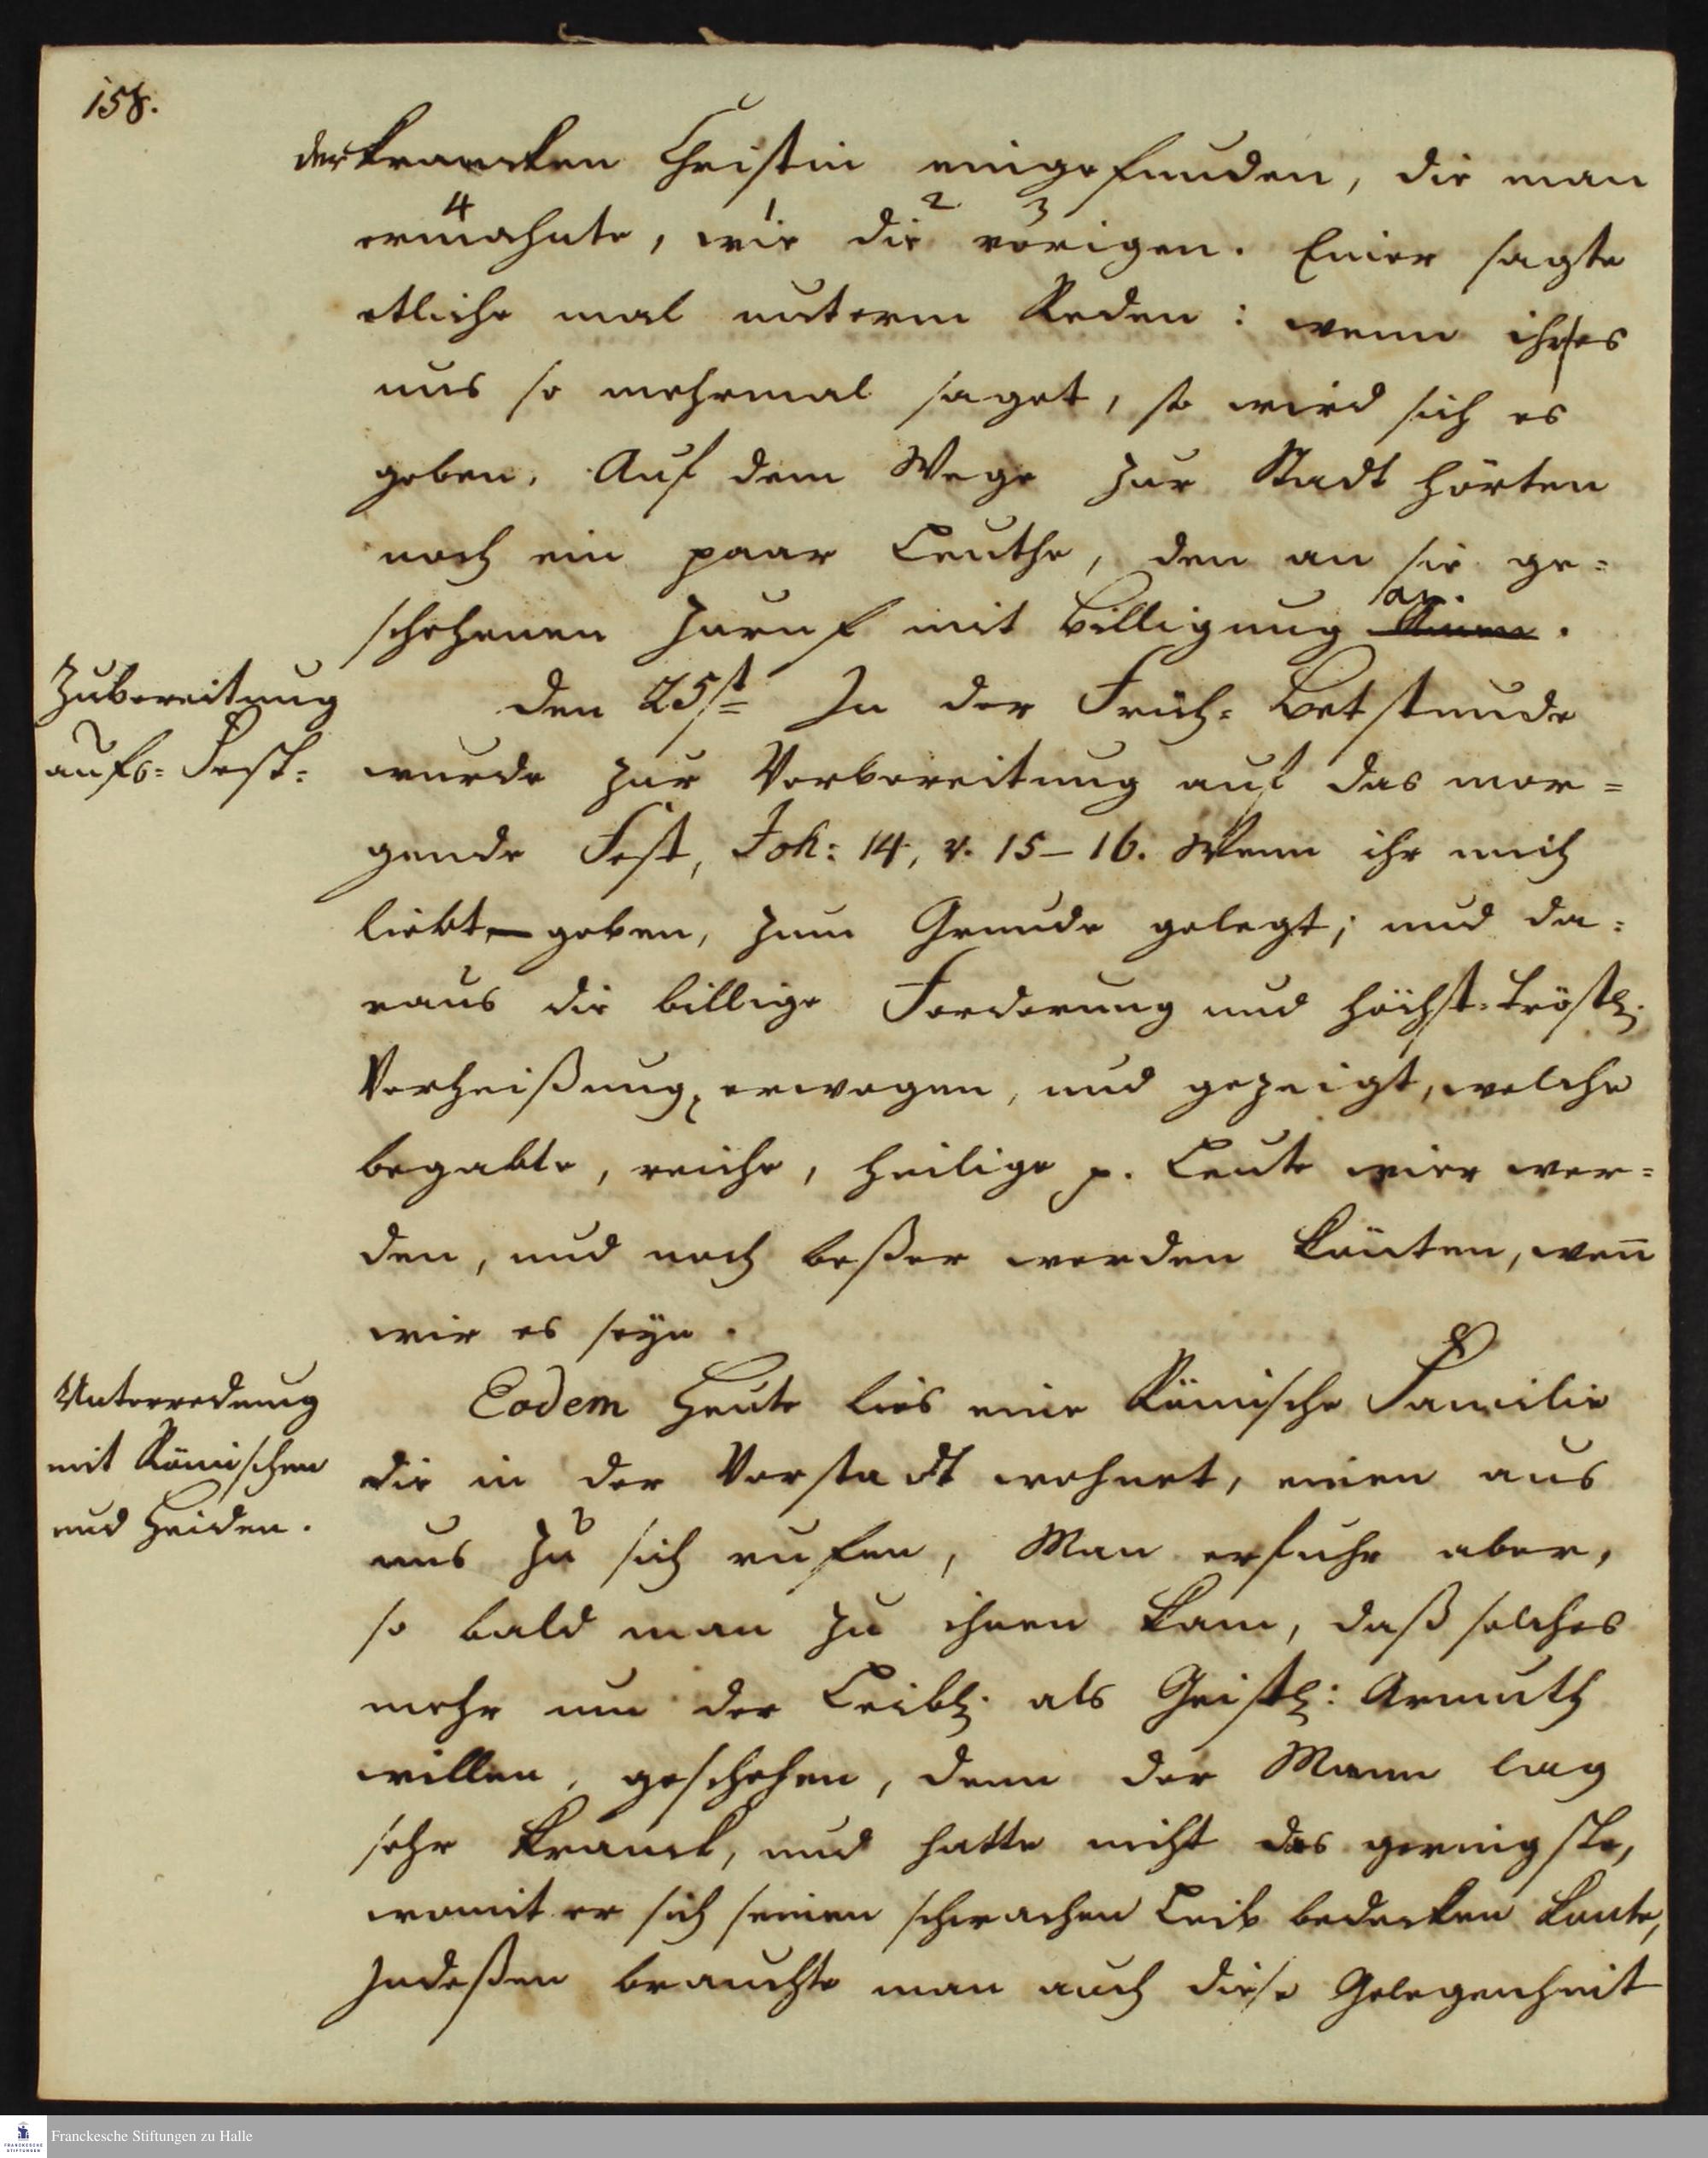 158.
der krancken Christin eingefunden, die man
4 1 2 3
ermahnte, wie die vorigen. Einer sagte
etliche mal unterm Reden: wenn ihr es
uns so mehrmal saget, so wird sich es
geben. Auf dem Wege zur Stadt hörten
noch ein paar Leuthe, den an sie ge=
schehenen Zuruf mit Billigung an.
Zubereitung
aufs= Fest=
den 25st In der Früh= Betstunde
wurde zur Vorbereitung auf das mor=
gende Fest, Joh: 14, v. 15-16. Wenn ihr mich
liebt, — geben, zum Grunde gelegt; und da=
raus die billige Forderung und höchst=tröstl.
Verheißung, erwogen, und gezeigt, welche
begabte, reiche, heilige p. Leute wier wer=
den, und noch beßer werden könten, weñ
wir es seyn.
Unterredung
mit Römischen
und Heiden.
Eodem Heute lies eine Römische Familie
die in der Vorstadt wohnet, einen aus
uns zu sich rufen, Man erfuhr aber,
so bald man zu ihnen kam, daß solches
mehr um der Leibl. als Geistl: Armuth
willen, geschehen, denn der Mann lag
sehr kranck, und hatte nicht das geringste,
womit er sich seinen schwachen Leib bedecken konte,
Indeßen brauchte man auch diese Gelegenheit
Franckesche Stiftungen zu Halle